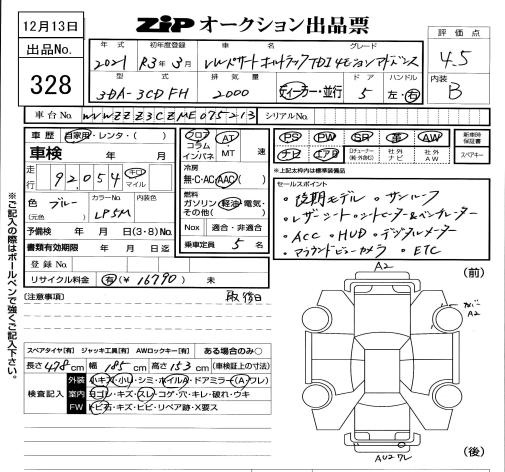 12月13日
ZIP オークション出品票
評価点
4.5
出品No.
328
年式 初年度登録 車名 グレード
2021 R3年3月 VWパサートオールトラックTDI 4モーションアドバンス
型式 排気量 ドア ハンドル
3DA-3CDFH 2000 ディーラー・並行 5 左・右
内装
B
車台No. WVWZZZ3CZME075213 シリアルNo.
車歴 自家用・レンタ・( )
車検 年 月
走行 92,054 キロ マイル
色 ブルー カラーNo. LP5M 内装色
(元色)
予備検 年 月 日(3・8)No.
書類有効期限 年 月 日迄
登録No.
リサイクル料金 有(¥16790) 未
フロア コラム インパネ AT・MT 速
冷房
無・C・AC・AAC( )
燃料
ガソリン・軽油・電気・その他( )
Nox 適合・非適合
乗車定員 5 名
PS PW SR 革 AW
ナビ エアB
社外ナビ 社外AW
新車時保証書
スペアキー
※上記太枠内は標準装備品
セールスポイント
・後期モデル ・サンルーフ
・レザーシート・シートヒーター&ベンチレーター
・ACC ・HUD ・デジタルメーター
・アラウンドビューカメラ ・ETC
※ご記入の際はボールペンで強くご記入下さい。
(注意事項)
取説日
スペアタイヤ[有] ジャッキ工具[有] AWロックキー[有] ある場合のみ○
長さ 478 cm 幅 185 cm 高さ 153 cm (車検証上の寸法)
検査記入
外装 小キズ・小U・シミ・ホイルA・ドアミラー(A・ワレ)
室内 ヨゴレ・キズ・スレ・コゲ・穴・キレ・破れ・ウキ
FW トビ石・キズ・ヒビ・リペア跡・X要ス
(前)
A2
A2
AU2ワレ
(後)